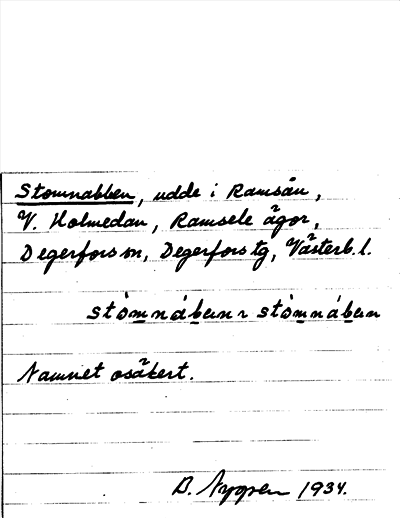 Stomnabben, udde i Ramsån,
V. Holmedan, Ramsele ägor,
Degerfors sn, Degerfors tg, Västerb. l.
stòmnábεun ~ stòmnábεun
Namnet osäkert.
B. Nygren 1934.